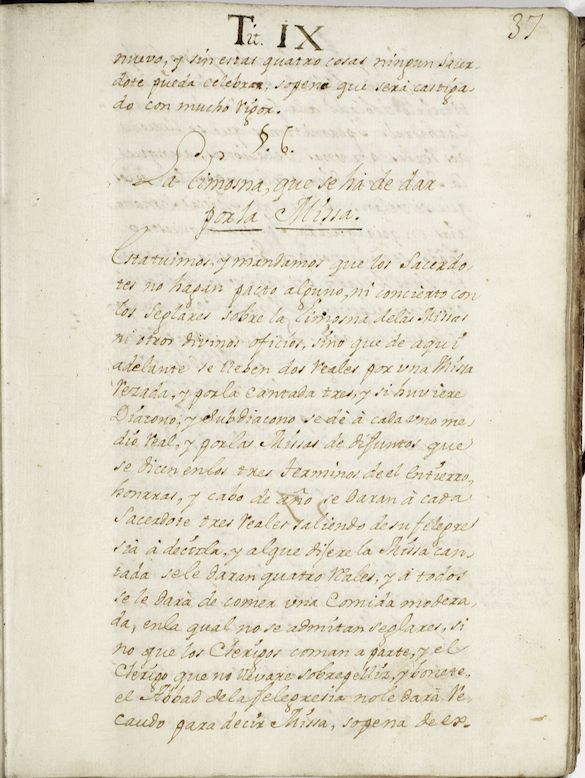 Tit. IX
37
nuevo, y sin estas quatro cosas ningun Sacer-
dote pueda celebrar, sopena que serà castiga-
do con mucho rigor.
§. 6.
La limosna, que se hà de dar
por la Missa.
Estatuimos, y mandamos que los Sacerdo-
tes no hagan pacto alguno, ni concierto con
los Seglares sobre la limosna delas Missas
ni otros divinos oficios, sino que de aquí
adelante se lleben dos reales por vna Missa
rezada, y por la Cantada tres, y si huviere
Diácono, y Subdiacono se dè à cada vno me-
dio real, y por las Missas de difuntos que
se dicen enlos tres terminos de el Entierro,
honrras, y cabo de año se daran à cada
Sacerdote tres reales saliendo de su felegre
sia à decirla, y al que dijere la Missa can-
tada sele daran quatro reales, y à todos
se le darà de comer vna Comida modera-
da, enla qual no se admitan seglares, si
no que los Clerigos coman a parte, y el
Clerigo que no llevare sobrepelliz, y bonete,
el Abbad dela felegresia nole darà re-
caudo para decir Missa, sopena de ex-